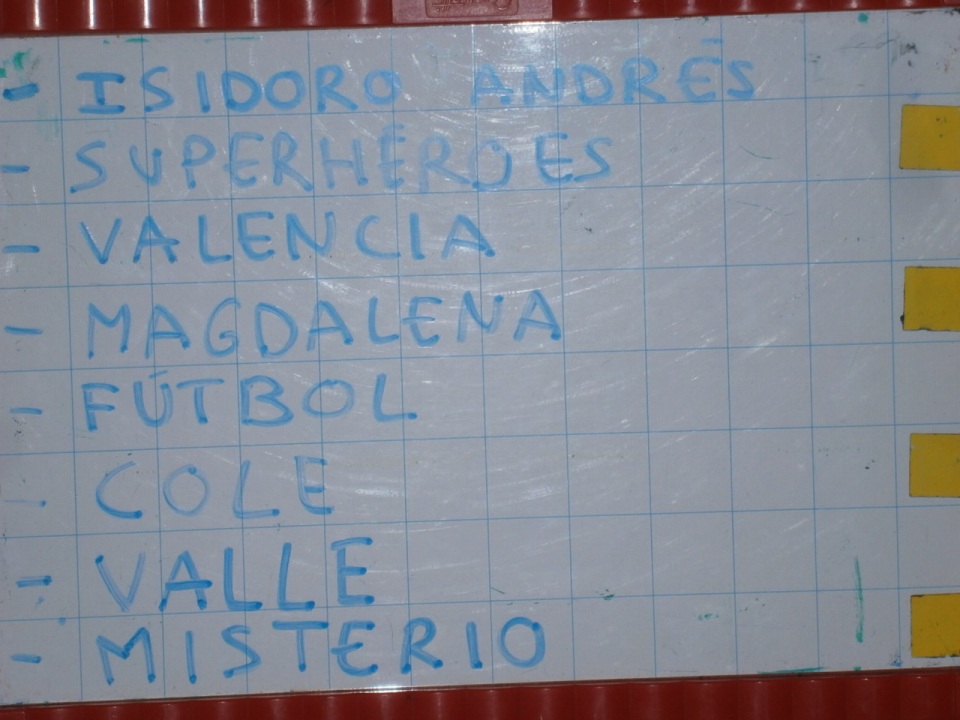 - ISIDORO ANDRÉS
- SUPERHÉROES
- VALENCIA
- MAGDALENA
- FÚTBOL
- COLE
- VALLE
- MISTERIO